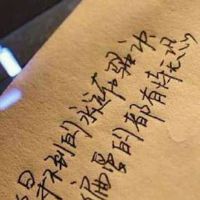 得不到的永远在骚动
偏爱的都有恃无恐